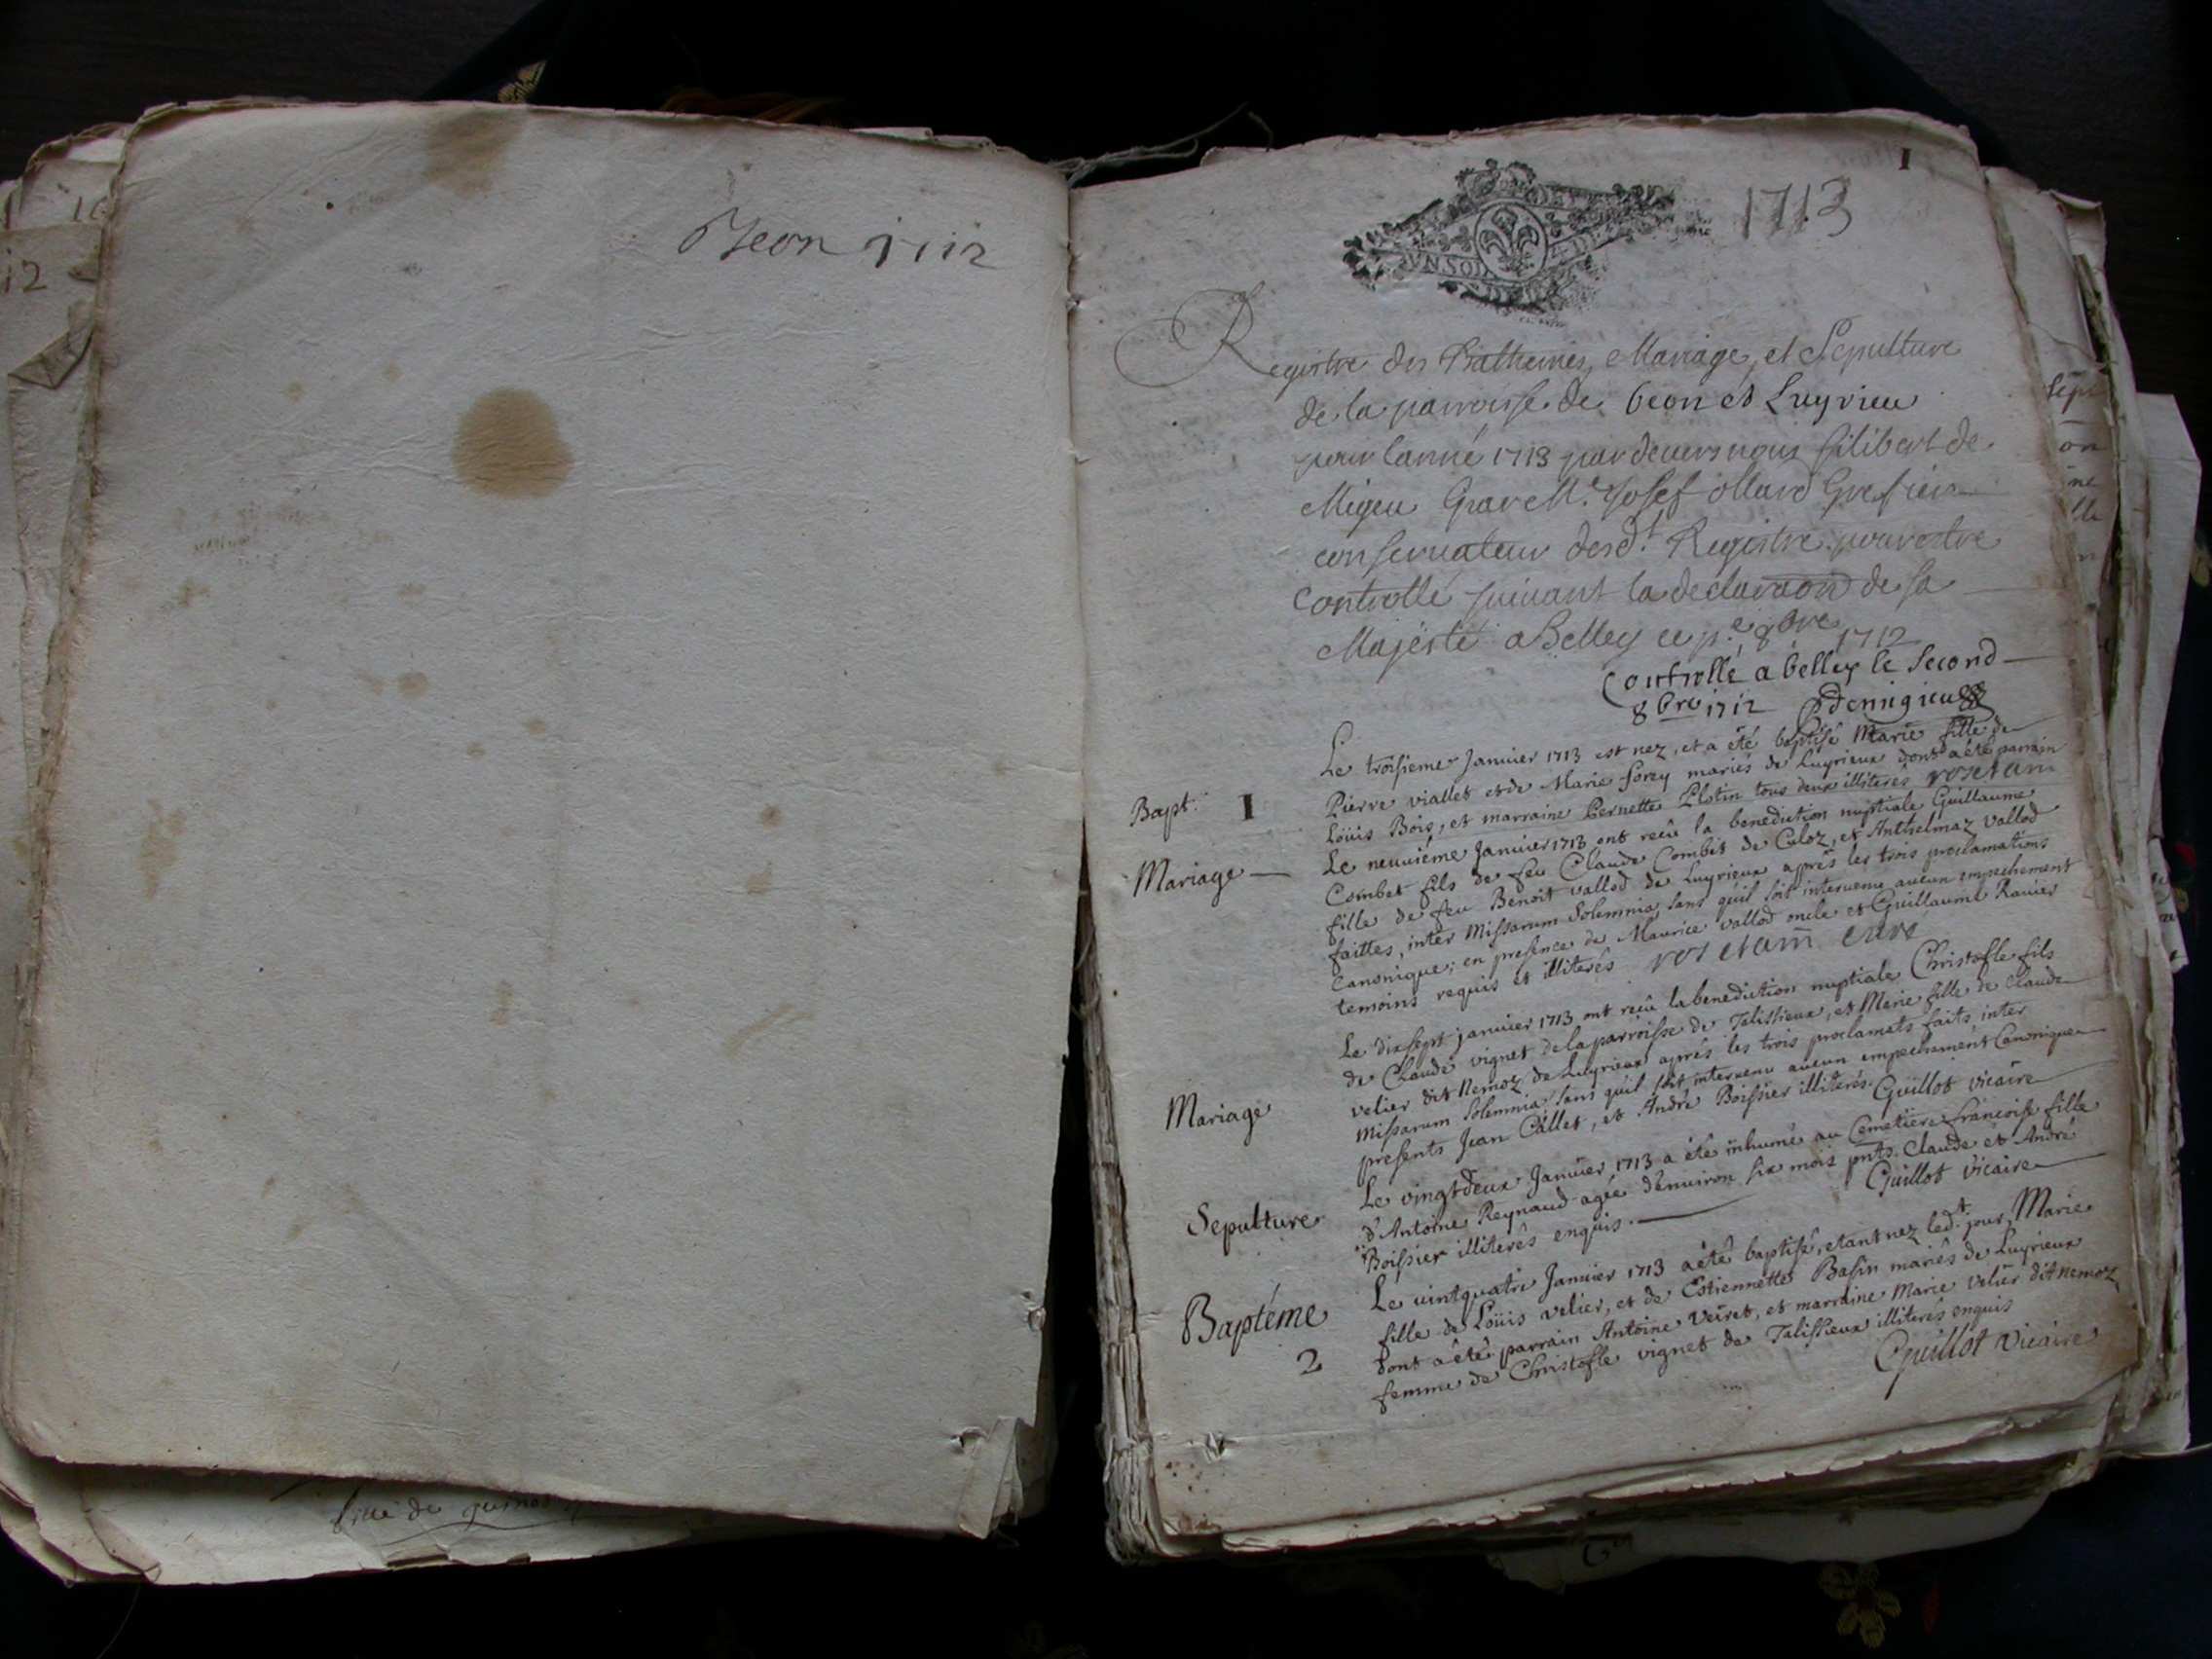 Beon 1712
1713
I
UN SOL
Registre des Bathemes, Mariage, et Sepulture
de la parroisse de beon et Luyrieu
pour l'anné 1713 par devers nous filibert de
Migeu Grar Mr. Josef ollard Grefier
conservateur desdt. Registre pour estre
Controllé suivant la declaraon de sa
Majesté a Belley ce pe. 8bre 1712
Controllé a belley le Second
8bre 1712 Demigieu
Bapt. I
Le troisieme Janvier 1713 est nez, et a été baptisé Marie fille de
Pierre viallet et de Marie forey mariés de Luyrieux dont a été parrain
Loüis Bois, et marraine Pernette Elotin tous deux illiterés rosetam
Mariage
Le neuvième Janvier 1713 ont reçû la benediction nuptiale Guillaume
Combet fils de feu Claude Combet de Culoz, et Anthelmaz vallod
fille de feu Benoit vallod de Luyrieux aprés les trois proclamations
faittes, inter Missarum Solemnia, sans qu'il soit intervenu aucun empechement
Canonique; en presence de Maurice vallod oncle et Guillaume Ravier
temoins requis et illiterés rosetam curé
Mariage
Le dixsept janvier 1713 ont reçû la benediction nuptiale Christofle fils
de Claude vignet de la parroisse de Talissieux, et Marie fille de Claude
velier dit Nemoz de Luyrieux aprés les trois proclamats faits, inter
Missarum Solemnia, sans qu'il soit intervenu aucun empechement Canonique
presents Jean Callet, et André Boissier illiterés. Guillot vicaire
Sepulture
Le vingtdeux Janvier 1713 a été inhumé au Cemetiere francoise fille
d'Antoine Reynaud agée d'environ six mois pnts. Claude et André
Boissier illiterés enquis. Guillot vicaire
Baptéme
2
Le vintquatre Janvier 1713 a été baptisé, etant nez ledt. jour, Marie
fille de Loüis velier, et de Estiennette Basin mariés de Luyrieux
dont a été parrain Antoine Veiret, et marraine Marie velier dit nemoz
femme de Christofle vignet de Talissieux illiterés enquis
Guillot vicaire